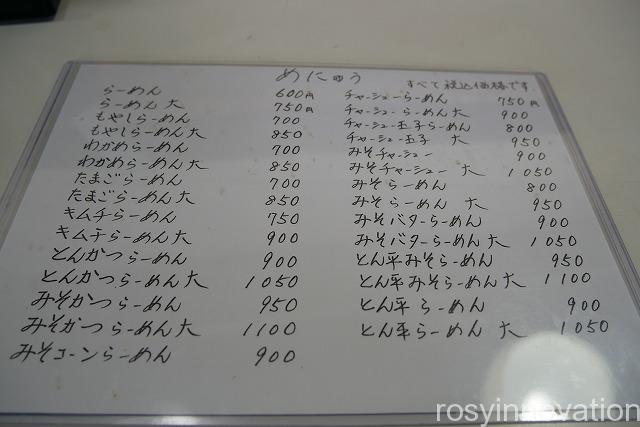 めにゅう
すべて税込価格です
らーめん 600円
らーめん 大 750円
もやしらーめん 700
もやしらーめん大 850
わかめらーめん 700
わかめらーめん大 850
たまごらーめん 700
たまごらーめん大 850
キムチらーめん 750
キムチらーめん大 900
とんかつらーめん 900
とんかつらーめん大 1050
みそかつらーめん 950
みそかつらーめん大 1100
みそコーンらーめん 900
チャーシューらーめん 750円
チャーシューらーめん大 900
チャーシュー玉子らーめん 800
チャーシュー玉子 大 950
みそチャーシュー 900
みそチャーシュー 大 1050
みそらーめん 800
みそらーめん 大 950
みそバターらーめん 900
みそバターらーめん大 1050
とん平みそらーめん 950
とん平みそらーめん大 1100
とん平らーめん 900
とん平らーめん 大 1050
rosyinnovation